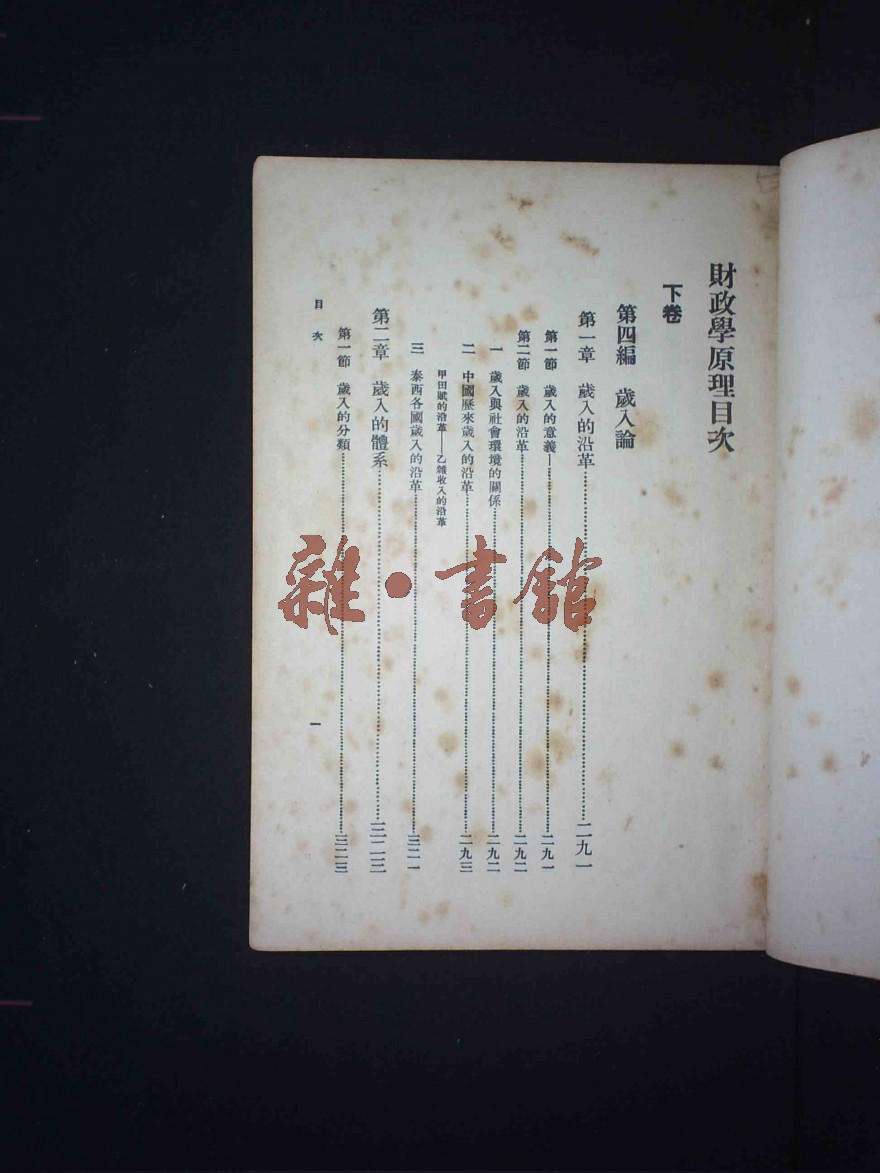 財政學原理目次
下卷
第四編 歲入論
第一章 歲入的沿革……二九一
第一節 歲入的意義……二九一
第二節 歲入的沿革……二九二
一 歲入與社會環境的關係……二九二
二 中國歷來歲入的沿革……二九三
甲田賦的沿革——乙雜收入的沿革
三 泰西各國歲入的沿革……三二一
第二章 歲入的體系……三二三
第一節 歲入的分類……三二三
目次 一
雜·書館